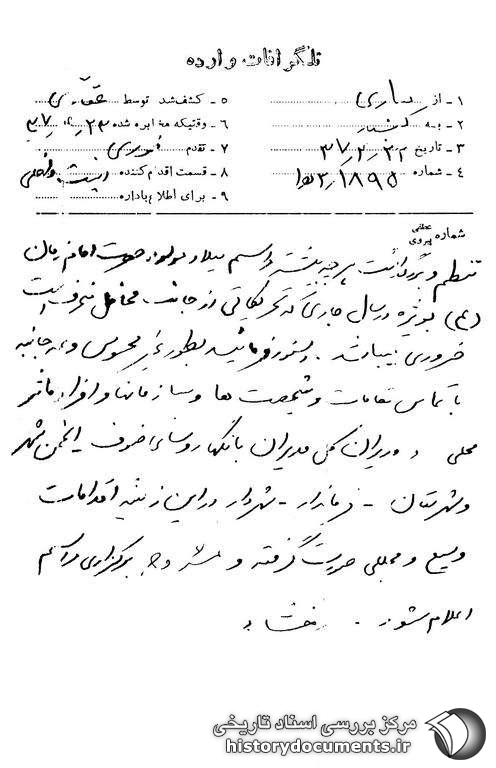 تلگرافات وارده
۱ - از ساری
۲ - به گنبد
۳ - تاریخ ۳۷٫۲٫۲۲
۴ - شماره
۵ - کشف شد توسط
۶ - وقتیکه مخابره شده
۷ - تقدم فوری
۸ - قسمت اقدام کننده
۹ - برای اطلاع باداره
شماره عطفی پیروی
تنظیم و برگزاری هر چه بیشتر مراسم میلاد مولود حضرت امام زمان
(عج) بویژه در سال جاری که تحریکاتی از جانب محافل
ضروری میباشد. دستور فرمائید بطور غیر محسوس و همه جانبه
با تماس مقامات و شخصیت ها و سازمانها و افراد مؤثر
محلی و مدیران کل مدیران بانکها روسای اصناف انجمن شهر
و شهرستان - فرماندار - شهردار در این زمینه اقدامات
وسیع و محلی صورت گرفته و نحوه برگزاری مراسم
اعلام شود.
مرکز بررسی اسناد تاریخی
historydocuments.ir